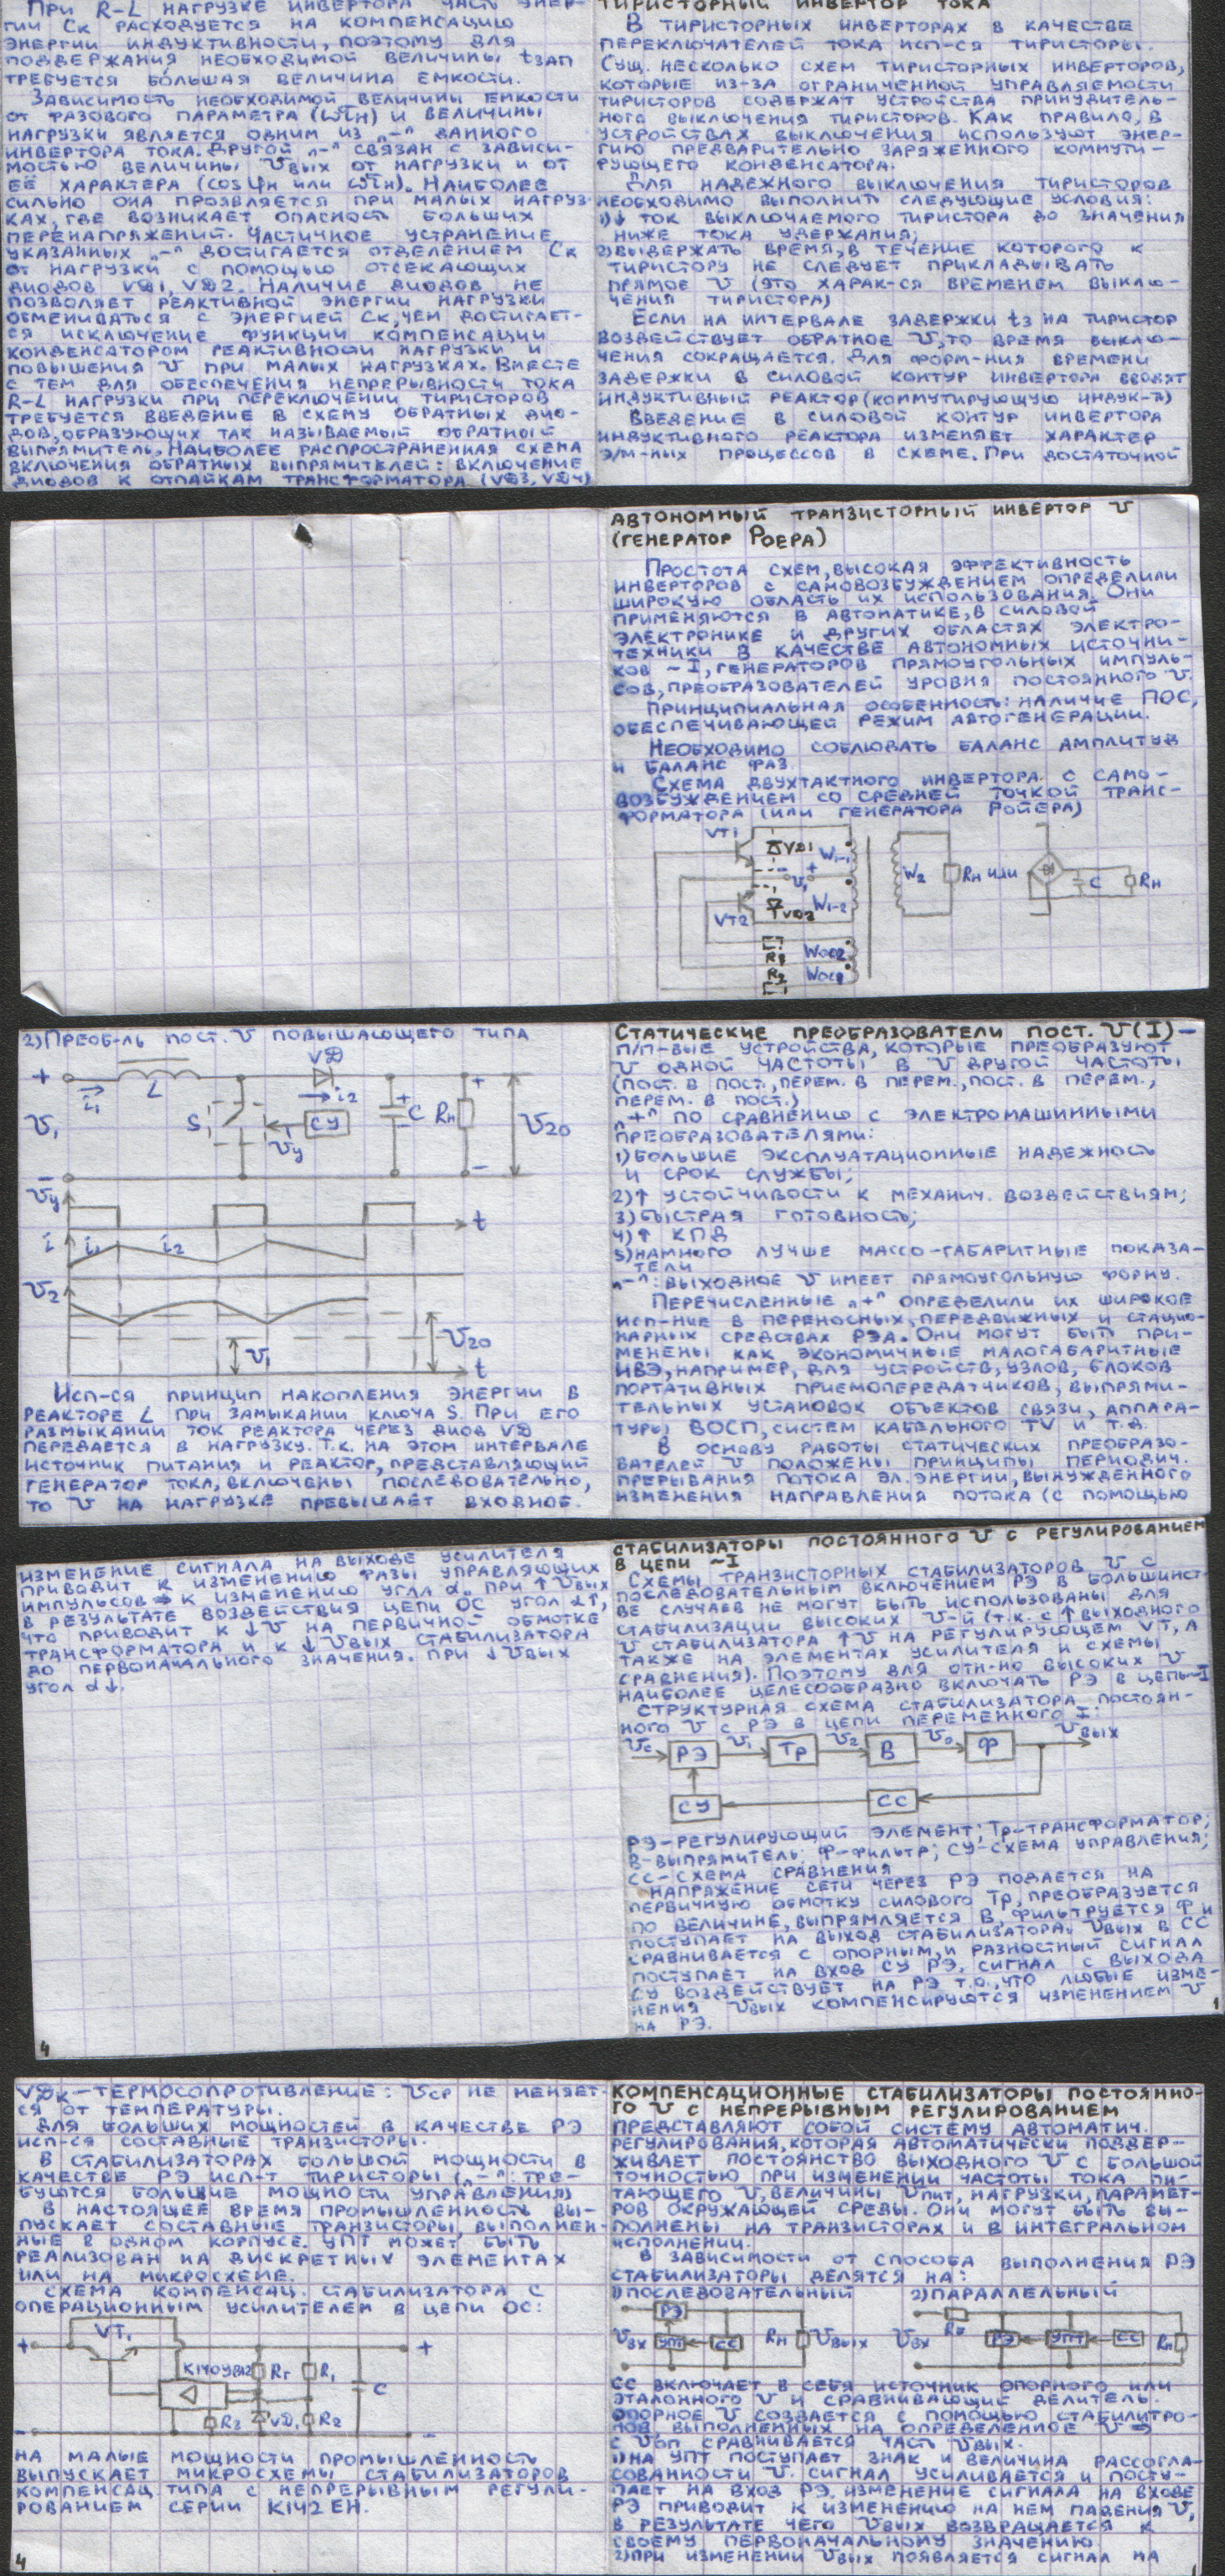 При R-L нагрузке инвертора часть энер-
гии Cк расходуется на компенсацию
энергии индуктивности, поэтому для
поддержания необходимой величины tзап
требуется бо́льшая величина емкости.
Зависимость необходимой величины емкости
от фазового параметра (ωτн) и величины
нагрузки является одним из „–" данного
инвертора тока. Другой „–" связан с зависи-
мостью величины Uвых от нагрузки и от
её характера (cosφн или ωτн). Наиболее
сильно она проявляется при малых нагруз-
ках, где возникает опасность больших
перенапряжений. Частичное устранение
указанных „–" достигается отделением Cк
от нагрузки с помощью отсекающих
диодов VD1, VD2. Наличие диодов не
позволяет реактивной энергии нагрузки
обмениваться с энергией Cк, чем достигает-
ся исключение функции компенсации
конденсатором реактивности нагрузки и
повышения U при малых нагрузках. Вместе
с тем для обеспечения непрерывности тока
R-L нагрузки при переключении тиристоров
требуется введение в схему обратных дио-
дов, образующих так называемый обратный
выпрямитель. Наиболее распространенная схема
включения обратных выпрямителей: включение
диодов к отпайкам трансформатора (VD3, VD4)
Тиристорный инвертор тока
В тиристорных инверторах в качестве
переключателей тока исп-ся тиристоры.
Сущ. несколько схем тиристорных инверторов,
которые из-за ограниченной управляемости
тиристоров содержат устройства принудитель-
ного выключения тиристоров. Как правило, в
устройствах выключения используют энер-
гию предварительно заряженного коммути-
рующего конденсатора.
Для надежного выключения тиристоров
необходимо выполнить следующие условия:
1)↓ ток выключаемого тиристора до значения
ниже тока удержания;
2)выдержать время, в течение которого к
тиристору не следует прикладывать
прямое U (это харак-ся временем выклю-
чения тиристора)
Если на интервале задержки tз на тиристор
воздействует обратное U, то время выклю-
чения сокращается. Для форм-ния времени
задержки в силовой контур инвертора вводят
индуктивный реактор (коммутирующую индук-ть)
Введение в силовой контур инвертора
индуктивного реактора изменяет характер
э/м-ных процессов в схеме. При достаточной
Автономный транзисторный инвертор U
(генератор Роера)
Простота схем, высокая эффективность
инверторов с самовозбуждением определили
широкую область их использования. Они
применяются в автоматике, в силовой
электронике и других областях электро-
техники в качестве автономных источни-
ков ~I, генераторов прямоугольных импуль-
сов, преобразователей уровня постоянного U.
Принципиальная особенность: наличие ПОС,
обеспечивающей режим автогенерации.
Необходимо соблювать баланс амплитуд
и баланс фаз.
Схема двухтактного инвертора с само-
возбуждением со средней точкой транс-
форматора (или генератора Ройера)
VT1 VD1 W1-1
– U1 + W2 Rн или C Rн
VT2 VD2 W1-2
R1 Wос2
R2 Wос1
2)Преоб-ль пост. U повышающего типа
VD
+ i1 L i2 + C Rн +
U1 S СУ U20
Uу
– –
Uу
t
i i1 i2
U2
U1 U20
t
Исп-ся принцип накопления энергии в
реакторе L при замыкании ключа S. При его
размыкании ток реактора через диод VD
передается в нагрузку. Т.к. на этом интервале
источник питания и реактор, представляющий
генератор тока, включены последовательно,
то U на нагрузке превышает входное.
Статические преобразователи пост. U(I) –
п/п-вые устройства, которые преобразуют
U одной частоты в U другой частоты
(пост. в пост., перем. в перем., пост. в перем.,
перем. в пост.)
„+" по сравнению с электромашинными
преобразователями:
1)большие эксплуатационные надежность
и срок службы;
2)↑ устойчивости к механич. воздействиям;
3)быстрая готовность;
4)↑ КПД
5)намного лучше массо-габаритные показа-
тели
„–": выходное U имеет прямоугольную форму.
Перечисленные „+" определили их широкое
исп-ние в переносных, передвижных и стацио-
нарных средствах РЭА. Они могут быть при-
менены как экономичные малогабаритные
ИВЭ, например, для устройств, узлов, блоков
портативных приемопередатчиков, выпрями-
тельных установок объектов связи, аппара-
туры ВОСП, систем кабельного TV и т.д.
В основу работы статических преобразо-
вателей U положены принципы периодич.
прерывания потока эл. энергии, вынужденного
изменения направления потока (с помощью
изменение сигнала на выходе усилителя
приводит к изменению фазы управляющих
импульсов ⇒ к изменению угла α. При ↑Uвых
в результате воздействия цепи ОС угол α↑,
что приводит к ↓U на первичной обмотке
трансформатора и к ↓Uвых стабилизатора
до первоначального значения. При ↓Uвых
угол α↓.
4
Стабилизаторы постоянного U с регулированием
в цепи ~I
Схемы транзисторных стабилизаторов U с
последовательным включением РЭ в большинст-
ве случаев не могут быть использованы для
стабилизации высоких U-й (т.к. с ↑ выходного
U стабилизатора ↑U на регулирующем VT, а
также на элементах усилителя и схемы
сравнения). Поэтому для отн-но высоких U
наиболее целесообразно включать РЭ в цепь~I
Структурная схема стабилизатора постоян-
ного U с РЭ в цепи переменного I:
Uс РЭ U1 Тр U2 В U0 Ф Uвых
СУ СС
РЭ-регулирующий элемент; Тр-трансформатор;
В-выпрямитель; Ф-фильтр; СУ-схема управления;
СС-схема сравнения
Напряжение сети через РЭ подается на
первичную обмотку силового Тр, преобразуется
по величине, выпрямляется В, фильтруется Ф и
поступает на выход стабилизатора. Uвых в СС
сравнивается с опорным, и разностный сигнал
поступает на вход СУ РЭ. Сигнал с выхода
СУ воздействует на РЭ т.о., что любые изме-
нения Uвых компенсируются изменением U
на РЭ.
1
VDк – термосопротивление: Uср не меняет-
ся от температуры.
Для больших мощностей в качестве РЭ
исп-ся составные транзисторы.
В стабилизаторах большой мощности в
качестве РЭ исп-т тиристоры („–": тре-
буются большие мощности управления)
В настоящее время промышленность вы-
пускает составные транзисторы, выполнен-
ные в одном корпусе. УПТ может быть
реализован на дискретных элементах
или на микросхеме.
Схема компенсац. стабилизатора с
операционным усилителем в цепи ОС:
VT1
+ +
К140УД12 Rг R1
C
R3 VD1 R2
– –
На малые мощности промышленность
выпускает микросхемы стабилизаторов
компенсац. типа с непрерывным регули-
рованием серии К142 ЕН.
4
Компенсационные стабилизаторы постоянно-
го U с непрерывным регулированием
представляют собой систему автоматич.
регулирования, которая автоматически поддер-
живает постоянство выходного U с большой
точностью при изменении частоты тока пи-
тающего U, величины Uпит, нагрузки, парамет-
ров окружающей среды. Они могут быть вы-
полнены на транзисторах и в интегральном
исполнении.
В зависимости от способа выполнения РЭ
стабилизаторы делятся на:
1)последовательный 2)параллельный
РЭ Rг
Uвх УПТ СС Rн Uвых Uвх РЭ УПТ СС Rн
СС включает в себя источник опорного или
эталонного U и сравнивающий делитель.
Опорное U создается с помощью стабилитро-
нов, выполненных на определенное U ⇒
с Uоп сравнивается часть Uвых.
1)На УПТ поступает знак и величина рассогла-
сованности U. Сигнал усиливается и посту-
пает на вход РЭ. Изменение сигнала на входе
РЭ приводит к изменению на нем падения U,
в результате чего Uвых возвращается к
своему первоначальному значению
2)При изменении Uвых появляется сигнал на
1